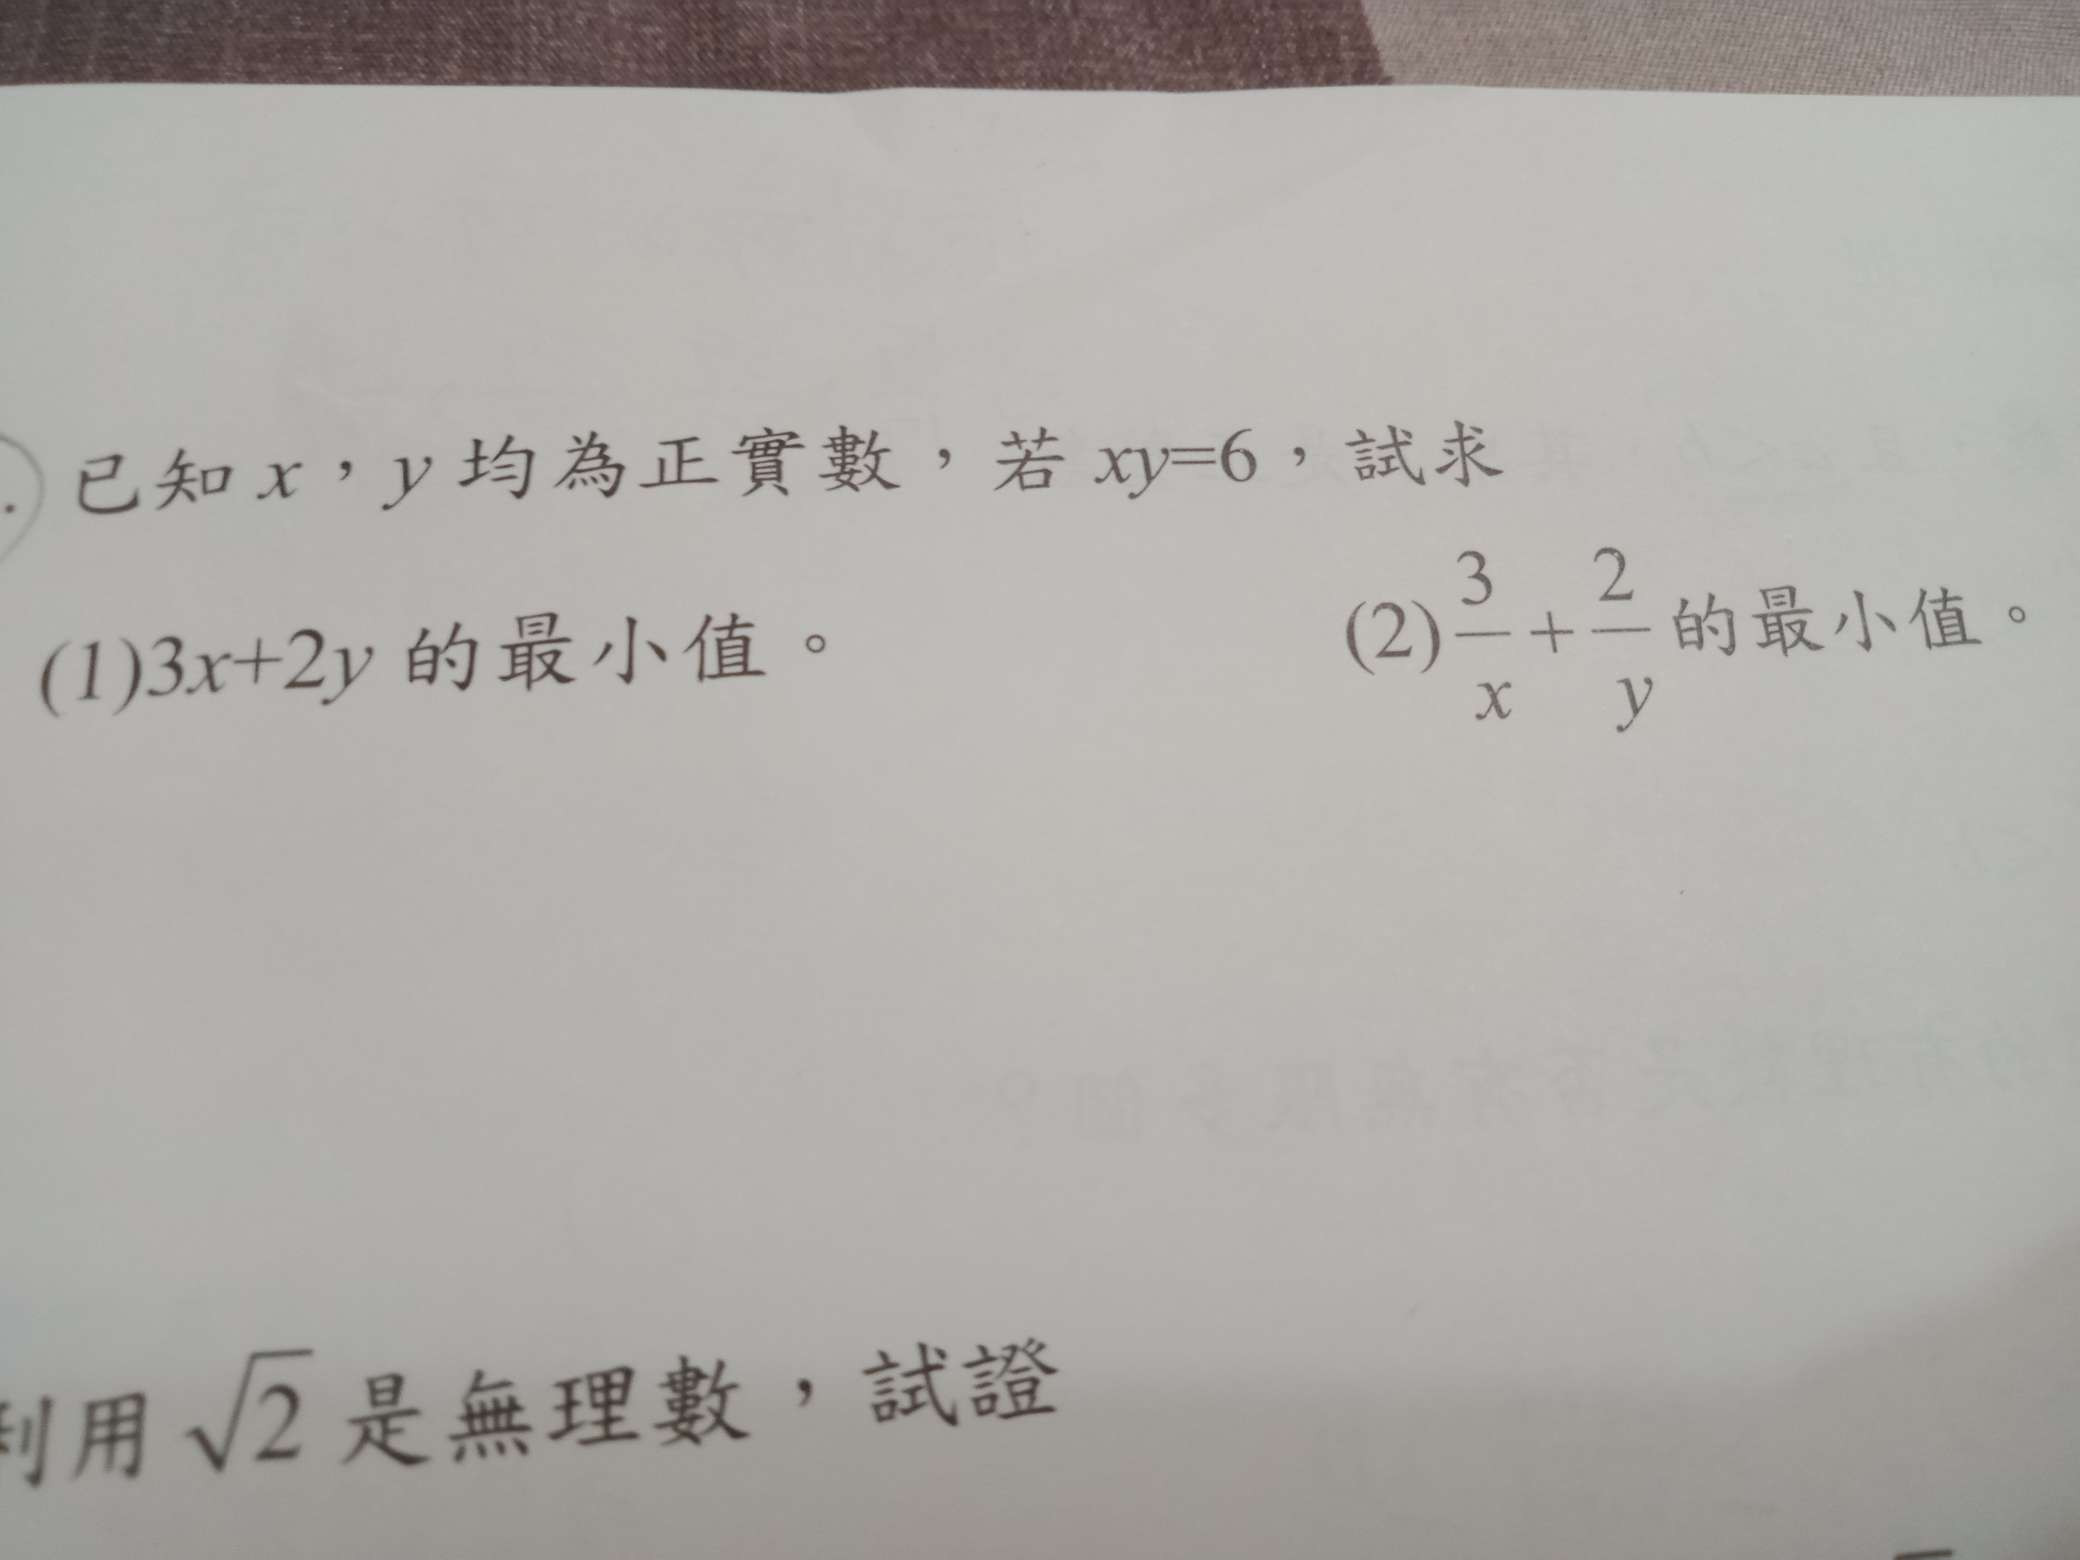 . 已知 x，y 均為正實數，若 xy=6，試求
(1)3x+2y 的最小值。 (2)3/x+2/y 的最小值。
利用 √2 是無理數，試證